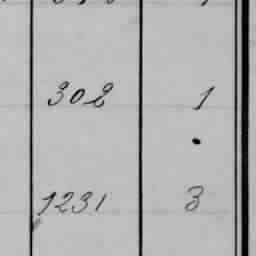 302 1
1231 3